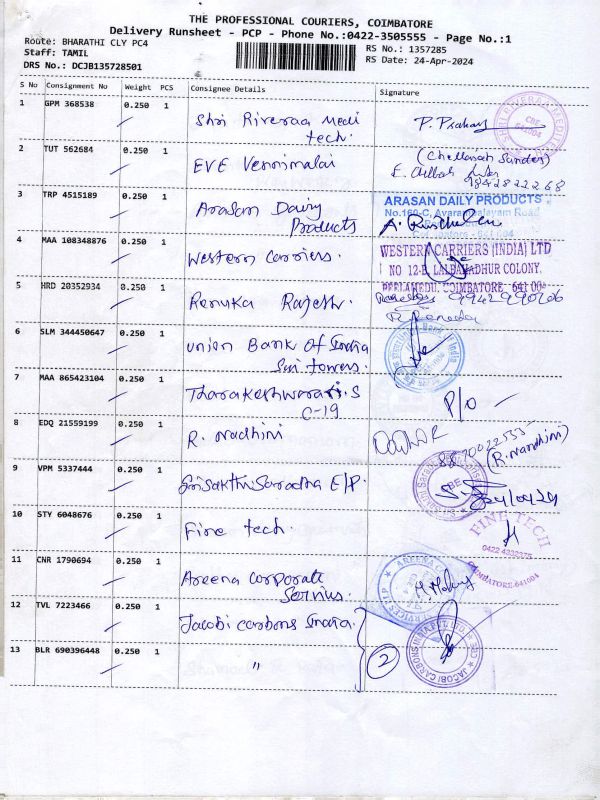 THE PROFESSIONAL COURIERS, COIMBATORE
Delivery Runsheet - PCP - Phone No.:0422-3505555 - Page No.:1
Route: BHARATHI CLY PC4
RS No.: 1357285
Staff: TAMIL
RS Date: 24-Apr-2024
DRS No.: DCJB135728501
S No Consignment No Weight PCS Consignee Details Signature
1 GPM 368538 0.250 1 Shri Riveraa Medi
tech.
CBE
641004
2 TUT 562684 0.250 1 EVE Vennimalai
9842822268
3 TRP 4515189 0.250 1 Arasan Dairy
Products
ARASAN DAILY PRODUCTS
No.160-C, Avarampalayam Road
4 MAA 108348876 0.250 1 Western Carriers.
WESTERN CARRIERS (INDIA) LTD
NO 12-E, LALBAHADHUR COLONY,
PEELAMEDU, COIMBATORE- 641 00
5 HRD 20352934 0.250 1 Renuka Rajesh.
6 SLM 344450647 0.250 1 Union Bank Of India
Sri towers.
7 MAA 865423104 0.250 1 Tharakeshwarari.S
C-19
P/O
8 EDQ 21559199 0.250 1 R. Nadhini
(R. Nandhini)
9 VPM 5337444 0.250 1 SriSakthiSaradha E/P.
24/04/24
10 STY 6048676 0.250 1 Fire tech.
COIMBATORE-641004
11 CNR 1790694 0.250 1 Areena Corporate
Services.
12 TVL 7223466 0.250 1 Jacobi Carbons India.
13 BLR 690396448 0.250 1 "
2
JACOBI CARBONS